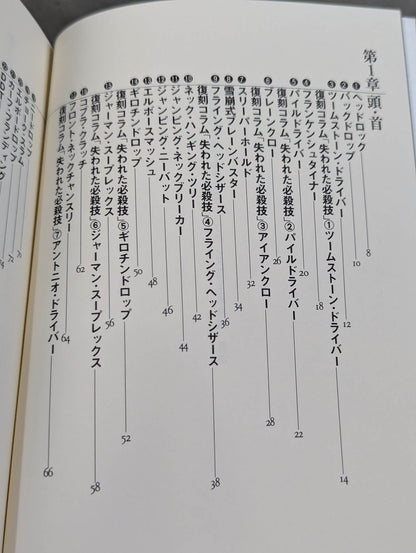 第I章 頭・首
❶ヘッドロック 8
❷バックドロップ 10
❸ツームストーン・ドライバー 12
復刻コラム「失われた必殺技」①ツームストーン・ドライバー 14
❹フランケンシュタイナー 18
❺パイルドライバー 20
復刻コラム「失われた必殺技」②パイルドライバー 22
❻ブレーンクロー 26
復刻コラム「失われた必殺技」③アイアンクロー 28
❼スリーパーホールド 32
❽雪崩式ブレーンバスター 34
❾フライング・ヘッドシザース 36
復刻コラム「失われた必殺技」④フライング・ヘッドシザース 38
❿ネック・ハンギング・ツリー 42
⓫ジャンピング・ネックブリーカー 44
⓬ジャンピング・ニーパット 46
⓭エルボースマッシュ 48
⓮ギロチンドロップ 50
復刻コラム「失われた必殺技」⑤ギロチンドロップ 52
⓯ジャーマン・スープレックス 56
復刻コラム「失われた必殺技」⑥ジャーマン・スープレックス 58
⓰コブラ・クラッチ 62
⓱フロント・ネックチャンスリー 64
復刻コラム「失われた必殺技」⑦アントニオ・ドライバー 66